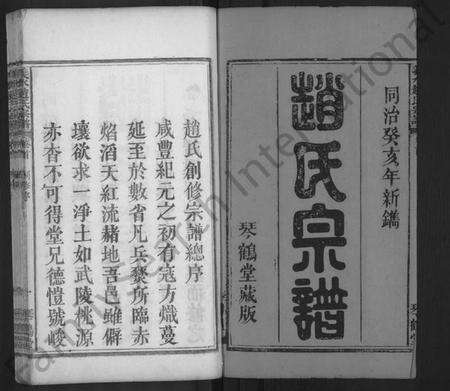 同治癸亥年新鐫
趙氏宗譜
琴鶴堂藏版
趙氏創修宗譜總序
咸豐紀元之初有寇方熾蔓
延至於數省凡兵燹所臨赤
焰滔天紅流赭地吾邑雖僻
壤欲求一淨土如武陵桃源
亦杳不可得堂兄德愷號峻